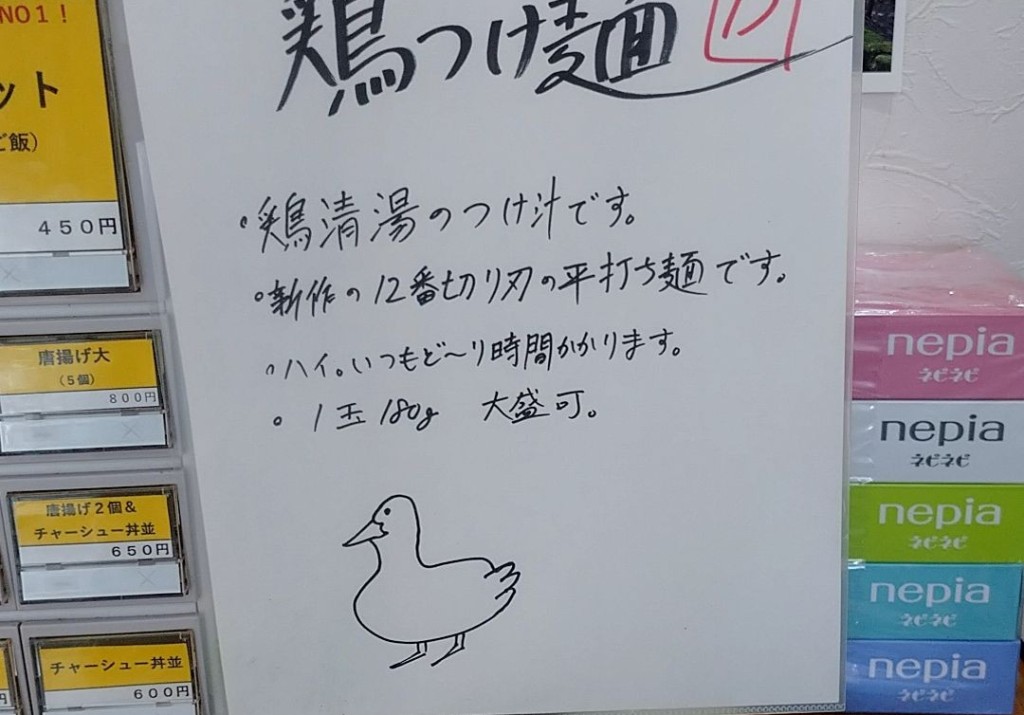 NO1!
ット
ご飯)
450円
唐揚げ大
(5個)
800円
唐揚げ2個&
チャーシュー丼並
650円
チャーシュー丼並
600円
円
鶏つけ麺
・鶏清湯のつけ汁です。
・新作の12番切り刃の平打ち麺です。
・ハイ。いつもど〜り時間かかります。
・1玉180g 大盛可。
nepia
ネピネピ
nepia
ネピネピ
nepia
ネピネピ
nepia
ネピネピ
nepia
ネピネピ